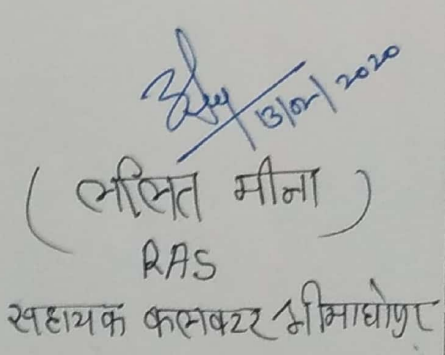 13/02/2020
( ललित मीना )
RAS
सहायक कलक्टर श्रीमाधोपुर